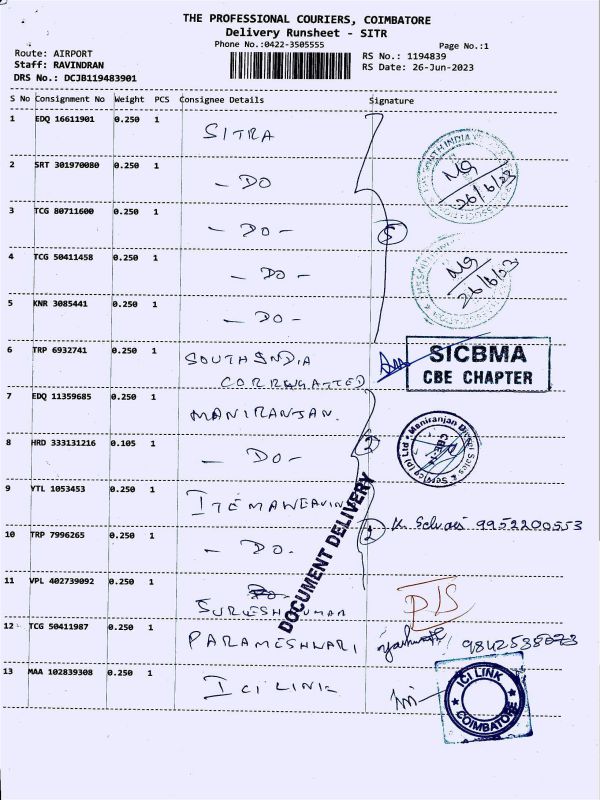 THE PROFESSIONAL COURIERS, COIMBATORE
Delivery Runsheet - SITR
Phone No.:0422-3505555
Page No.:1
Route: AIRPORT
RS No.: 1194839
Staff: RAVINDRAN
RS Date: 26-Jun-2023
DRS No.: DCJB119483901
S No Consignment No Weight PCS Consignee Details Signature
1 EDQ 16611901 0.250 1 SITRA
2 SRT 301970080 0.250 1 - DO
26/6/23
3 TCG 80711600 0.250 1 - DO -
5
4 TCG 50411458 0.250 1 - DO -
26/6/23
5 KNR 3085441 0.250 1 - DO -
6 TRP 6932741 0.250 1 SOUTH INDIA
CORRUGATTED
SICBMA
CBE CHAPTER
7 EDQ 11359685 0.250 1 MANIRANJAN.
8 HRD 333131216 0.105 1 - DO -
2
Maniranjan Diesel Sales & Service (P) Ltd
CBE-14
9 YTL 1053453 0.250 1 ITEMAWEAVING
2 K. Selvi 9952200553
10 TRP 7996265 0.250 1 - DO.
DOCUMENT DELIVERY
11 VPL 402739092 0.250 1 SURESH KUMAR
D/S
12 TCG 50411987 0.250 1 PARAMESHWARI
13 MAA 102839308 0.250 1 ICI LINK
ICI LINK
COIMBATORE